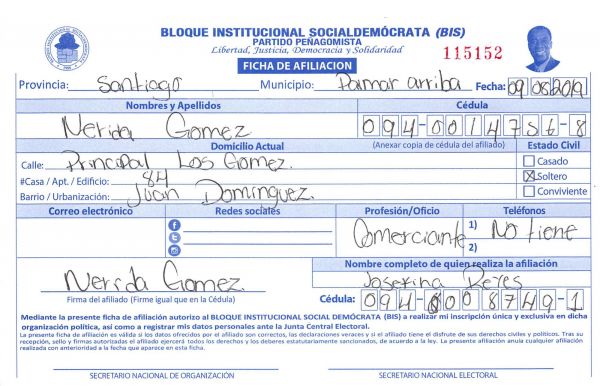 BLOQUE INSTITUCIONAL SOCIALDEMÓCRATA (BIS)
PARTIDO PEÑAGOMISTA
Libertad, Justicia, Democracia y Solidaridad
115152
FICHA DE AFILIACION
Provincia: Santiago Municipio: Palmar arriba Fecha: 09 08 2019
Nombres y Apellidos Cédula
Nerida Gomez 094-0014756-8
Domicilio Actual (Anexar copia de cédula del afiliado) Estado Civil
Calle: Principal Los Gomez. Casado
#Casa / Apt. / Edificio: 84 Soltero
Barrio / Urbanización: Juan Dominguez. Conviviente
Correo electrónico Redes sociales Profesión/Oficio Teléfonos
Comerciante 1) No tiene
2)
Nombre completo de quien realiza la afiliación
Nerida Gomez. Josefina Reyes
Firma del afiliado (Firme igual que en la Cédula) Cédula: 094-0008749-1
Mediante la presente ficha de afiliación autorizo al BLOQUE INSTITUCIONAL SOCIAL DEMÓCRATA (BIS) a realizar mi inscripción única y exclusiva en dicha
organización política, así como a registrar mis datos personales ante la Junta Central Electoral.
La presente ficha de afiliación es válida si los datos ofrecidos por el afiliado son correctos, las declaraciones veraces y si el afiliado tiene el disfrute de sus derechos civiles y políticos. Tras su
recepción, sello y firmas autorizadas el afiliado ejercerá todos los derechos y los deberes estatutariamente sancionados, de acuerdo a la ley. La presente afiliación anula cualquier afiliación
realizada con anterioridad a la fecha que aparece en esta ficha.
SECRETARIO NACIONAL DE ORGANIZACIÓN SECRETARIO NACIONAL ELECTORAL